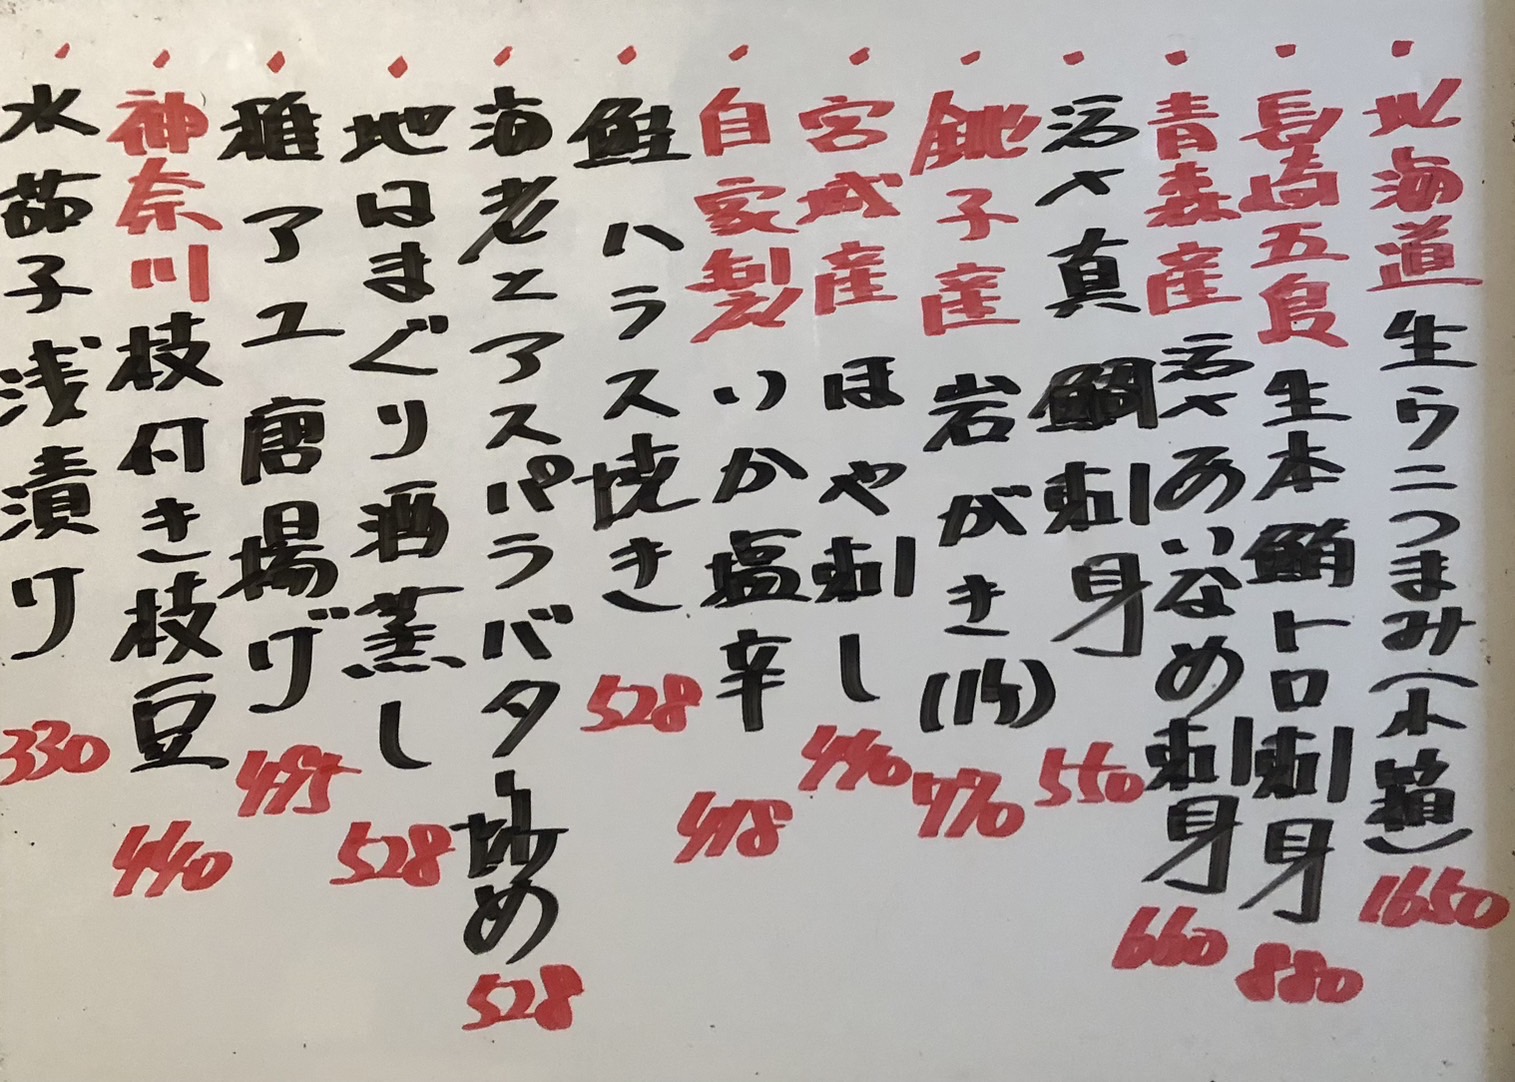 ・北海道 生ウニつまみ(小箱) 1650
・長崎五島 生本鮪トロ刺身 880
・青森産 活〆あいなめ刺身 660
・活〆真鯛刺身 550
・銚子産 岩がき(1ヶ) 770
・宮城産 ほや刺し 440
・自家製 いか塩辛 418
・鮭ハラス焼き 528
・海老とアスパラバター炒め 528
・地はまぐり酒蒸し 528
・稚アユ唐揚げ 495
・神奈川 枝付き枝豆 440
・水茄子浅漬け 330